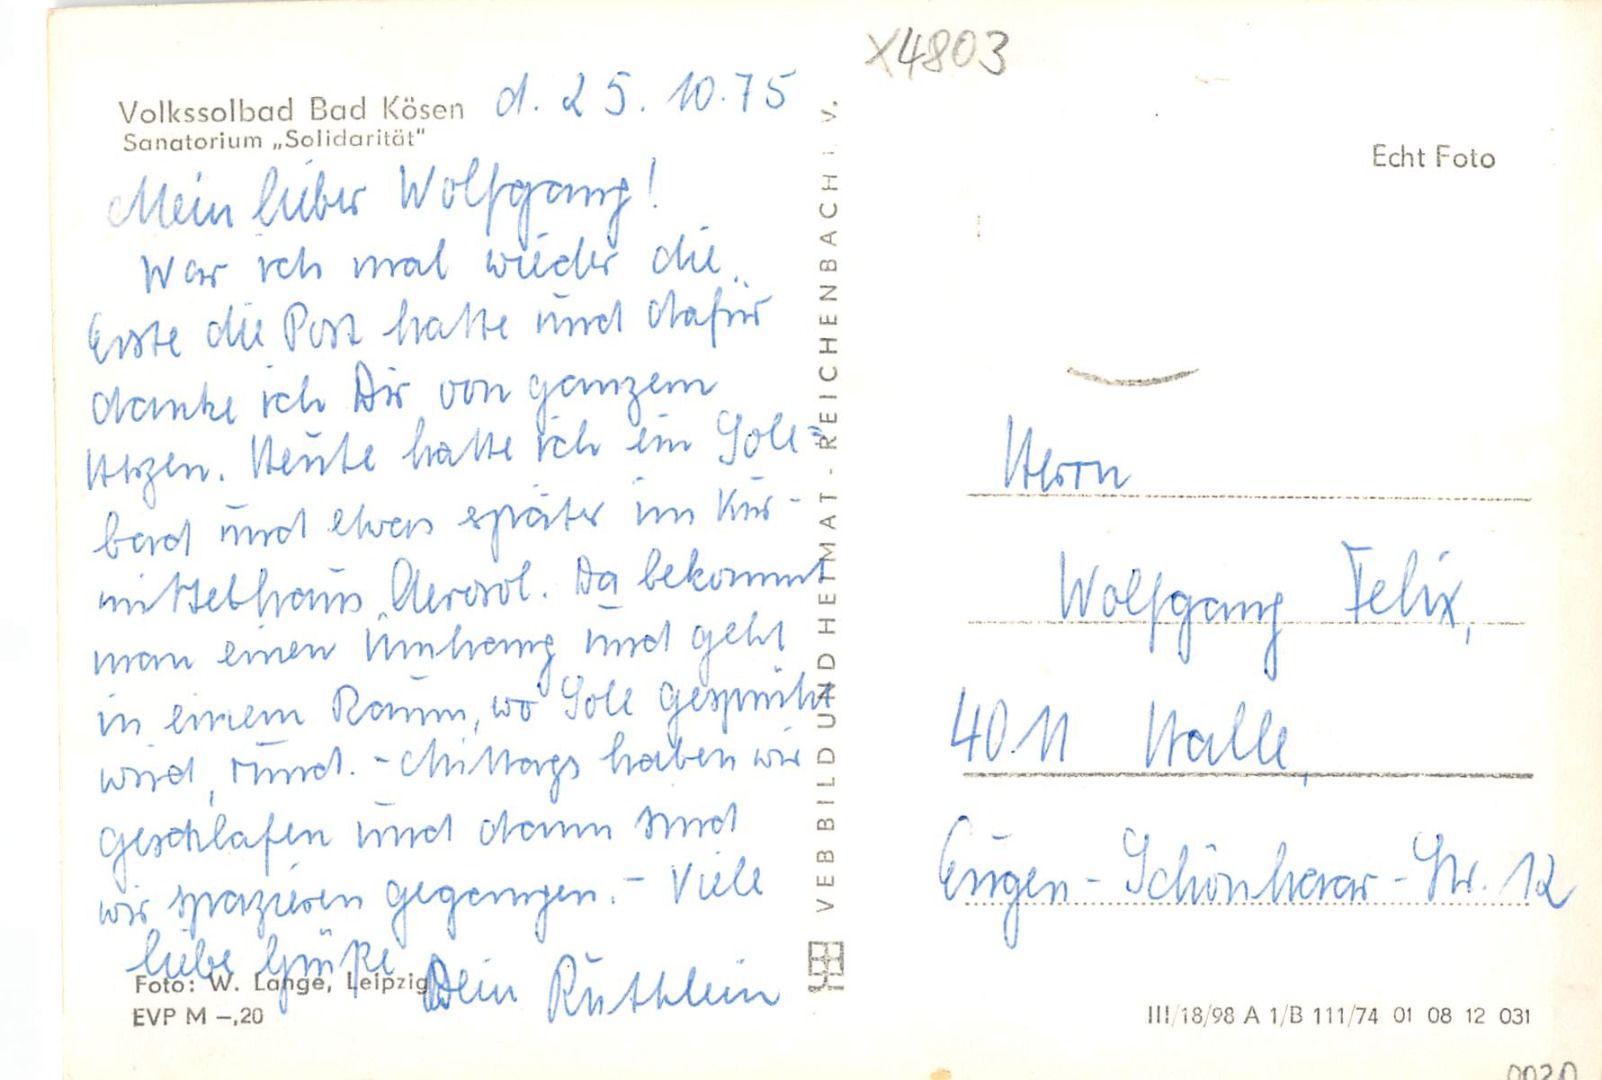 Volkssolbad Bad Kösen
Sanatorium „Solidarität"
d. 25.10.75
Mein lieber Wolfgang!
War ich mal wieder die
Erste die Post hatte und dafür
danke ich Dir von ganzem
Herzen. Heute hatte ich ein Sole=
bad und etwas später im Kur-
mittelhaus Aerosol. Da bekommt
man einen Umhang und geht
in einem Raum, wo Sole gesprüht
wird, rund. - Mittags haben wir
geschlafen und dann sind
wir spazieren gegangen. - Viele
liebe Grüße Dein Ruthlein
Foto: W. Lange, Leipzig
EVP M –,20
VEB BILD UND HEIMAT - REICHENBACH I. V.
X4803
Echt Foto
Herrn
Wolfgang Felix,
4011 Halle,
Eugen-Schönhaar-Str. 12
III/18/98 A 1/B 111/74 01 08 12 031
0020